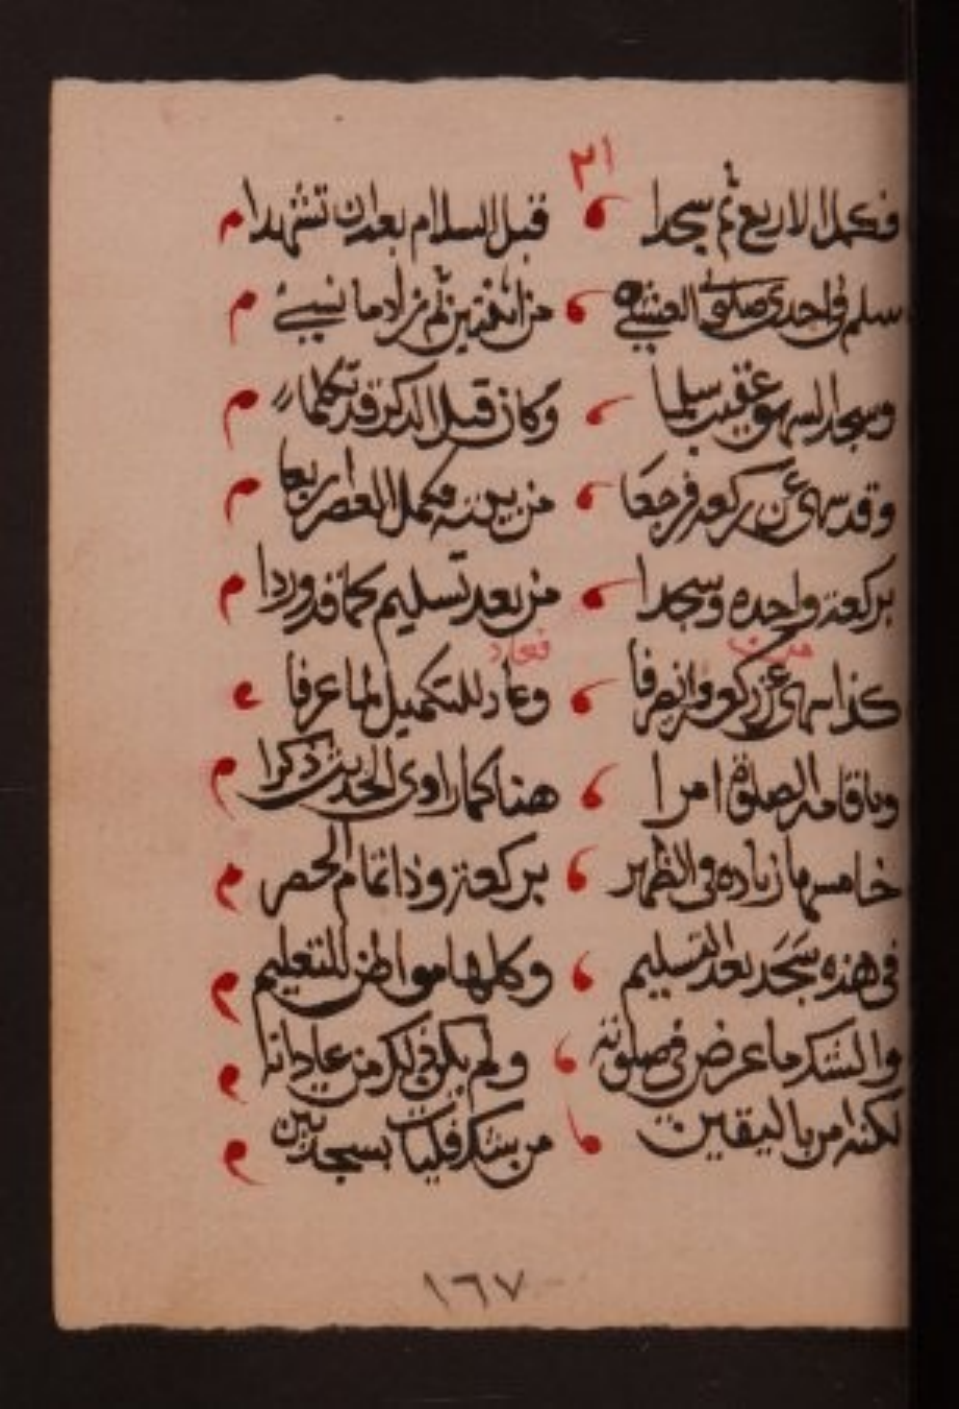 ٢١
فكمل الاربع ثم سجدا فبل السلام بعد ان تشهدا م
سلم في احدى صلوتي العشي من اثنتين ثم زاد ما نسي م
وسجد السهو عقيب سلما وكان قبل الذكر قد تكلما م
وقد سهى عن ركعه فرجعا من بيته فكمل العصر اربعا م
بركعة واحده وسجدا من بعد تسليم كما قد وردا م
كذا سهى عن ركوع وانصرفا وعاد للتكميل لما عرفا
وباقامه الصلوة امرا هنا كما راوى الحديث ذكرا م
خامسها زياده في الظهر بركعة وذا تمام الحصر م
في هذه سجد بعد التسليم وكلها مواطن للتعليم م
والشك ما عرض في صلوته ولم يكن ذلك من عاداته م
لكنه امر باليقين من يشك فليات بسجدتين م
١٦٧